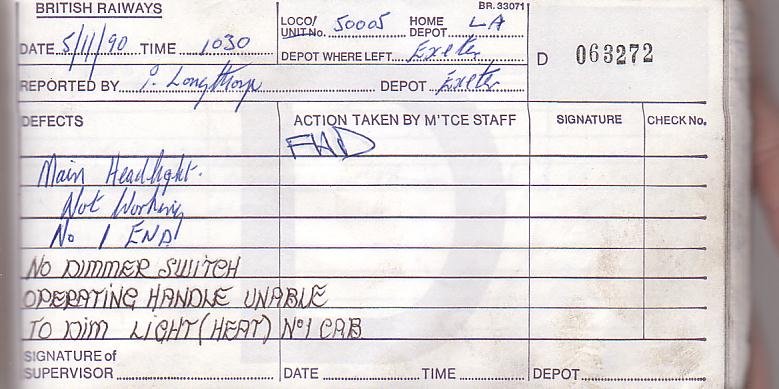 BRITISH RAILWAYS
BR. 33071
LOCO/ UNIT No. 50005 HOME DEPOT LA
DATE 5/11/90 TIME 1030
DEPOT WHERE LEFT Exeter
D 063272
REPORTED BY P. Longthorp DEPOT Exeter
DEFECTS ACTION TAKEN BY M'TCE STAFF SIGNATURE CHECK No.
Main Headlight.
Not Working
No 1 END
NO DIMMER SWITCH
OPERATING HANDLE UNABLE
TO DIM LIGHT (HEAT) No1 CAB
SIGNATURE of
SUPERVISOR DATE TIME DEPOT